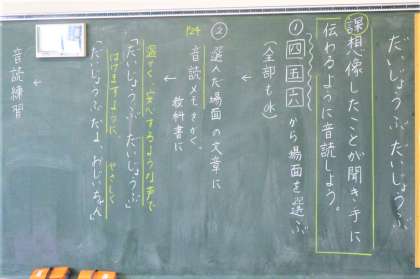 だいじょうぶ だいじょうぶ
課 想像したことが聞き手に
伝わるように音読しよう。
① 四 五 六 から場面を選ぶ
(全部も可)
↓
② 選んだ場面の文章に
P.24 音読メモをかく。
教科書に
↓
遅く、安心するような声で
「だいじょうぶ だいじょうぶ」
はげますように、やさしく
「だいじょうぶだよ、おじいちゃん」
↓
音読練習